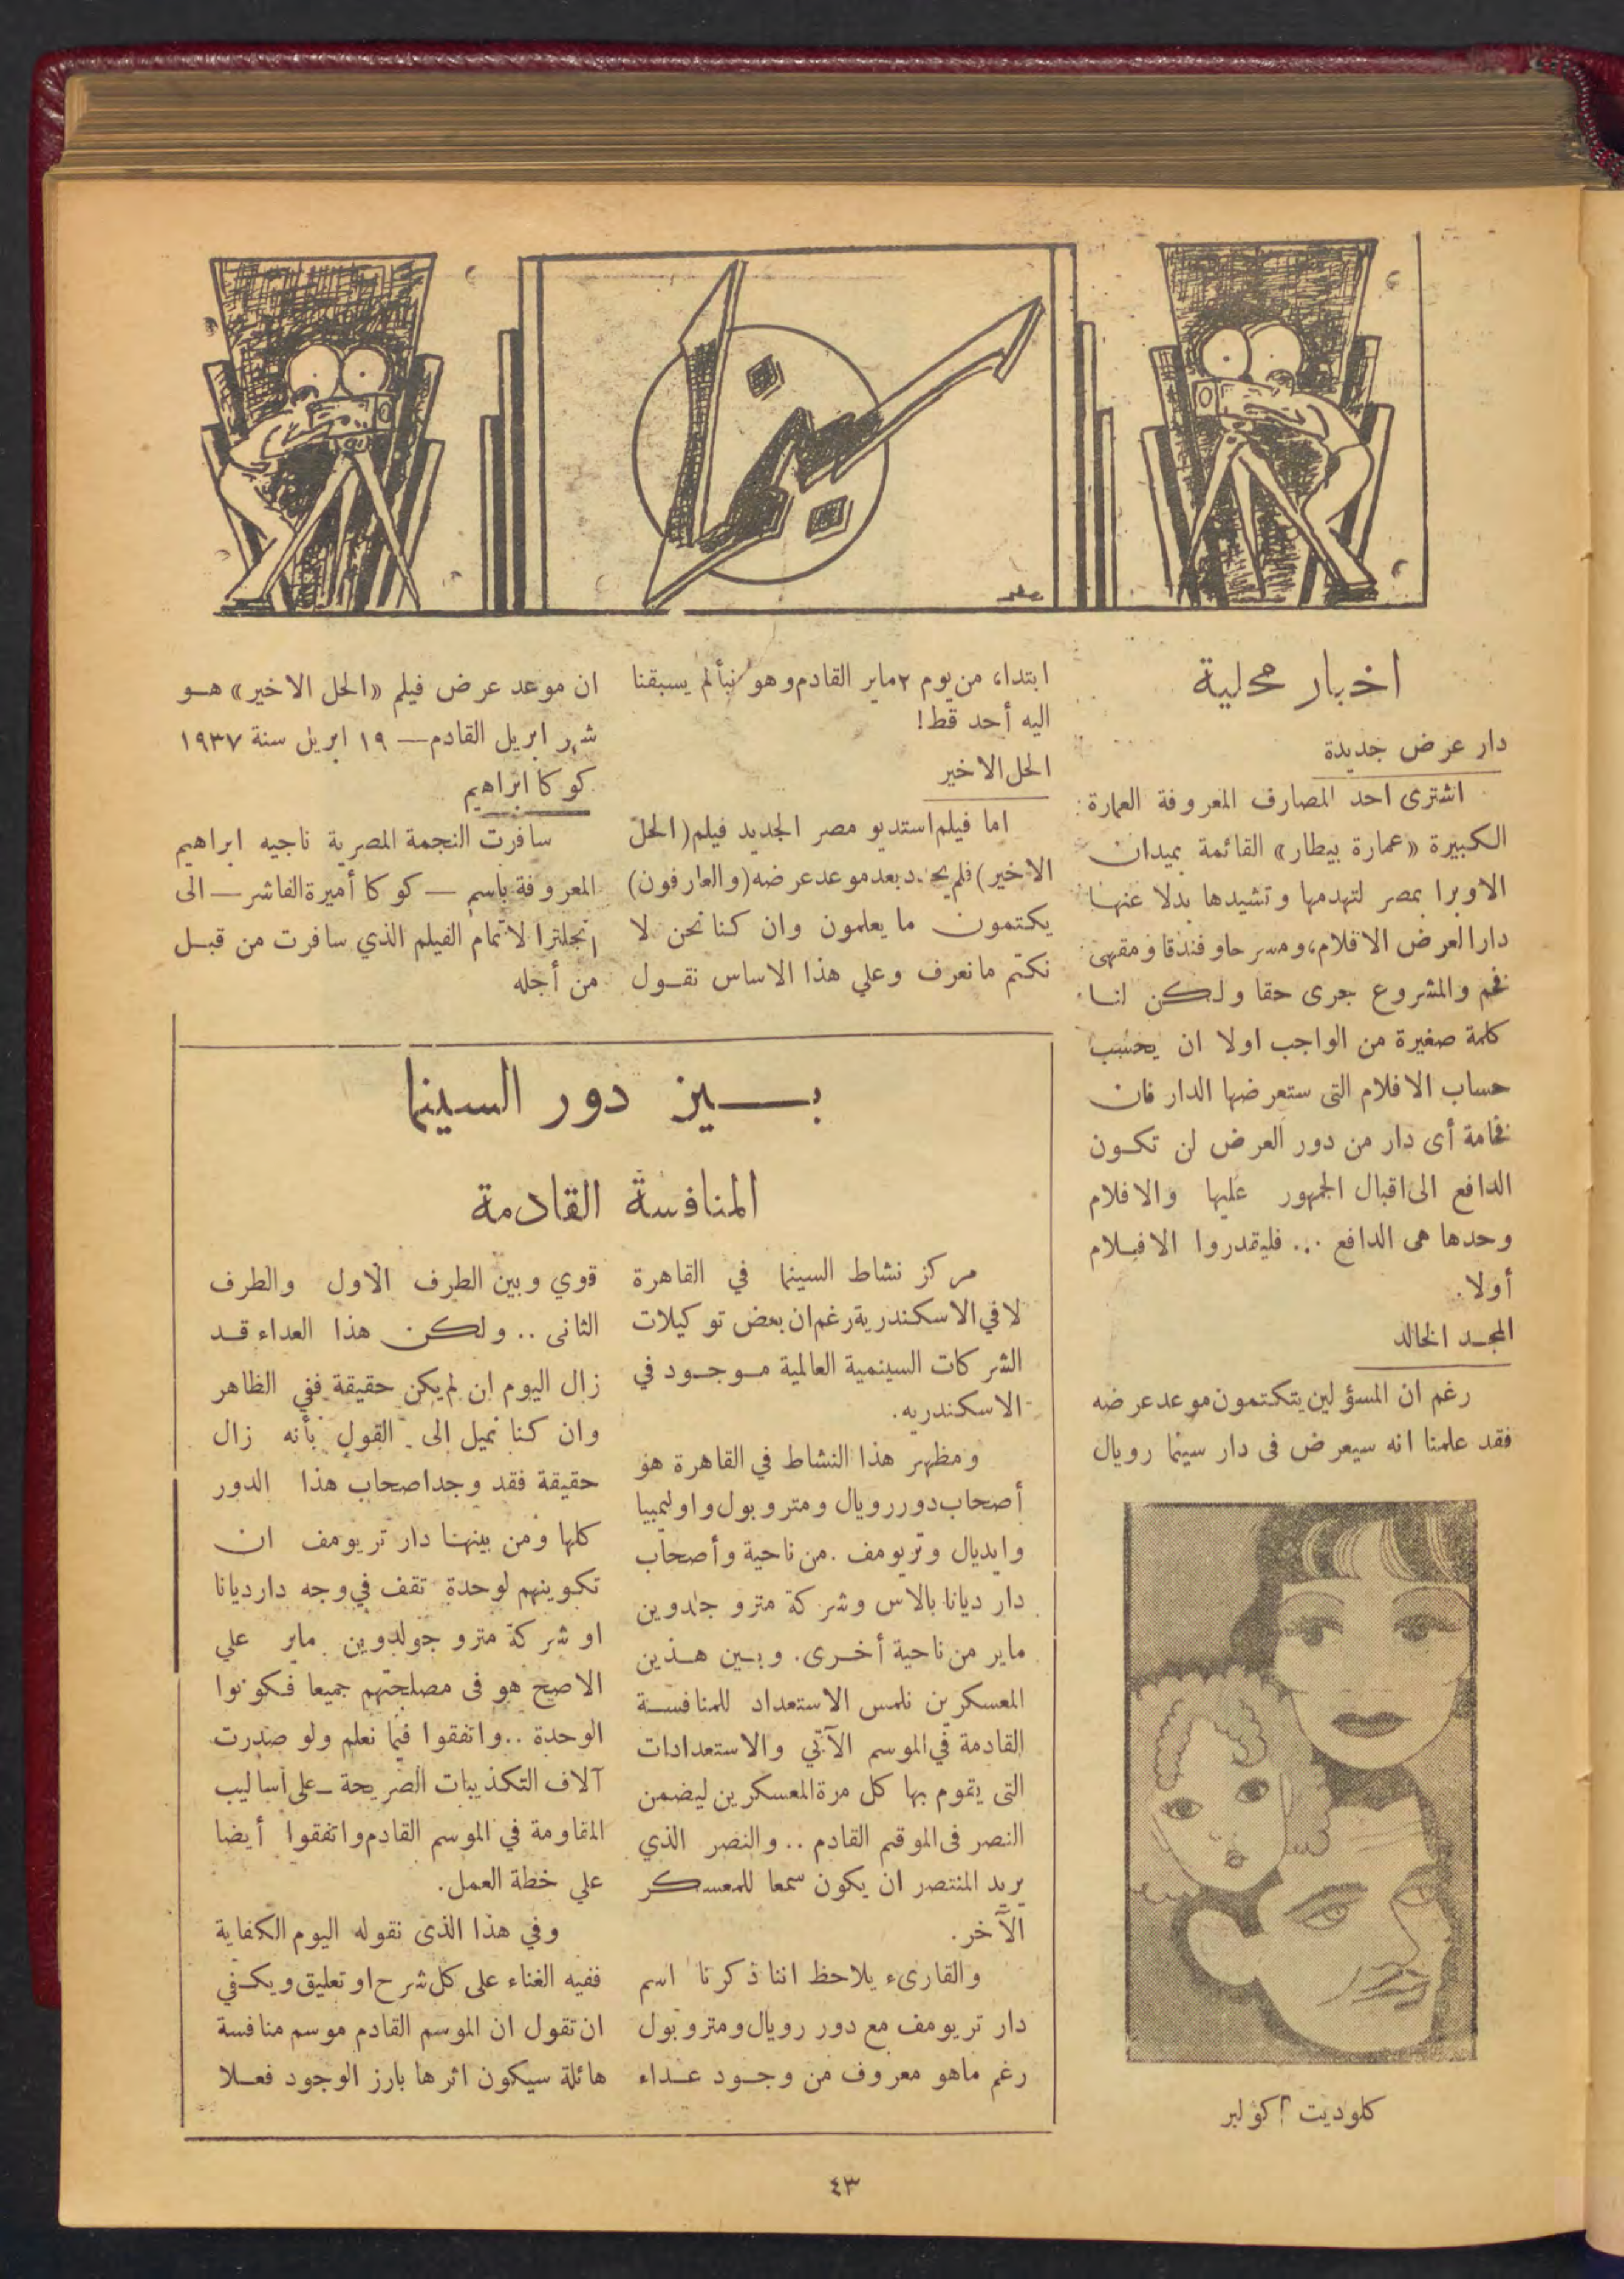 سينما
اخبار محلية
دار عرض جديدة
اشترى احد المصارف المعروفة العمارة
الكبيرة «عمارة بيطار» القائمة بميدان
الاوبرا بمصر لتهدمها وتشيدها بدلا عنها
دارا لعرض الافلام، ومسرحا وفندقا ومقهى
فخم والمشروع جرى حقا ولكن لنا
كلمة صغيرة من الواجب اولا ان يحسب
حساب الافلام التى ستعرضها الدار فان
فخامة أى دار من دور العرض لن تكون
الدافع الى اقبال الجمهور عليها والافلام
وحدها هى الدافع ... فليقدروا الافيلام
أولا.
المجد الخالد
رغم ان المسؤلين يتكتمون موعد عرضه
فقد علمنا انه سيعرض فى دار سينما رويال
كلوديت كولبر
ابتداء من يوم ٢ ماير القادم وهو نبأ لم يسبقنا
اليه أحد قط!
الحل الاخير
اما فيلم استديو مصر الجديد فيلم (الحل
الاخير) فلم يحدد بعد موعد عرضه (والعارفون)
يكتمون ما يعلمون وان كنا نحن لا
نكتم ما نعرف وعلي هذا الاساس نقول
ان موعد عرض فيلم «الحل الاخير» هو
شهر ابريل القادم — ١٩ ابريل سنة ١٩٣٧
كوكا ابراهيم
سافرت النجمة المصرية ناجيه ابراهيم
المعروفة باسم — كوكا أميرة الفاشر — الى
انجلترا لاتمام الفيلم الذي سافرت من قبل
من أجله
بين دور السينما
المنافسة القادمة
مركز نشاط السينما في القاهرة
لا في الاسكندرية رغم ان بعض توكيلات
الشركات السينمية العالمية موجود في
الاسكندريه.
ومظهر هذا النشاط في القاهرة هو
أصحاب دور رويال ومتروبول واوليمبيا
وايديال وتريومف. من ناحية وأصحاب
دار ديانا بالاس وشركة مترو جلدوين
ماير من ناحية أخرى. وبين هذين
المعسكرين نلمس الاستعداد للمنافسة
القادمة في الموسم الآتي والاستعدادات
التى يقوم بها كل مرة المعسكرين ليضمن
النصر فى الموقم القادم .. والنصر الذي
يريد المنتصر ان يكون سمعا للمعسكر
الآخر.
والقارىء يلاحظ اننا ذكرنا اسم
دار تريومف مع دور رويال ومتروبول
رغم ماهو معروف من وجود عداء
قوي وبين الطرف الاول والطرف
الثانى .. ولكن هذا العداء قد
زال اليوم ان لم يكن حقيقة ففي الظاهر
وان كنا نميل الى القول بأنه زال
حقيقة فقد وجد اصحاب هذا الدور
كلها ومن بينها دار تريومف ان
تكوينهم لوحدة تقف في وجه دار ديانا
او شركة مترو جولدوين ماير علي
الاصح هو فى مصلحتهم جميعا فكونوا
الوحدة .. واتفقوا فيما نعلم ولو صدرت
آلاف التكذيبات الصريحة — على أساليب
المقاومة في الموسم القادم واتفقوا أيضا
علي خطة العمل.
وفي هذا الذى نقوله اليوم الكفاية
ففيه الغناء على كل شرح او تعليق ويكفي
ان تقول ان الموسم القادم موسم منافسة
هائلة سيكون اثرها بارز الوجود فعلا
٤٣